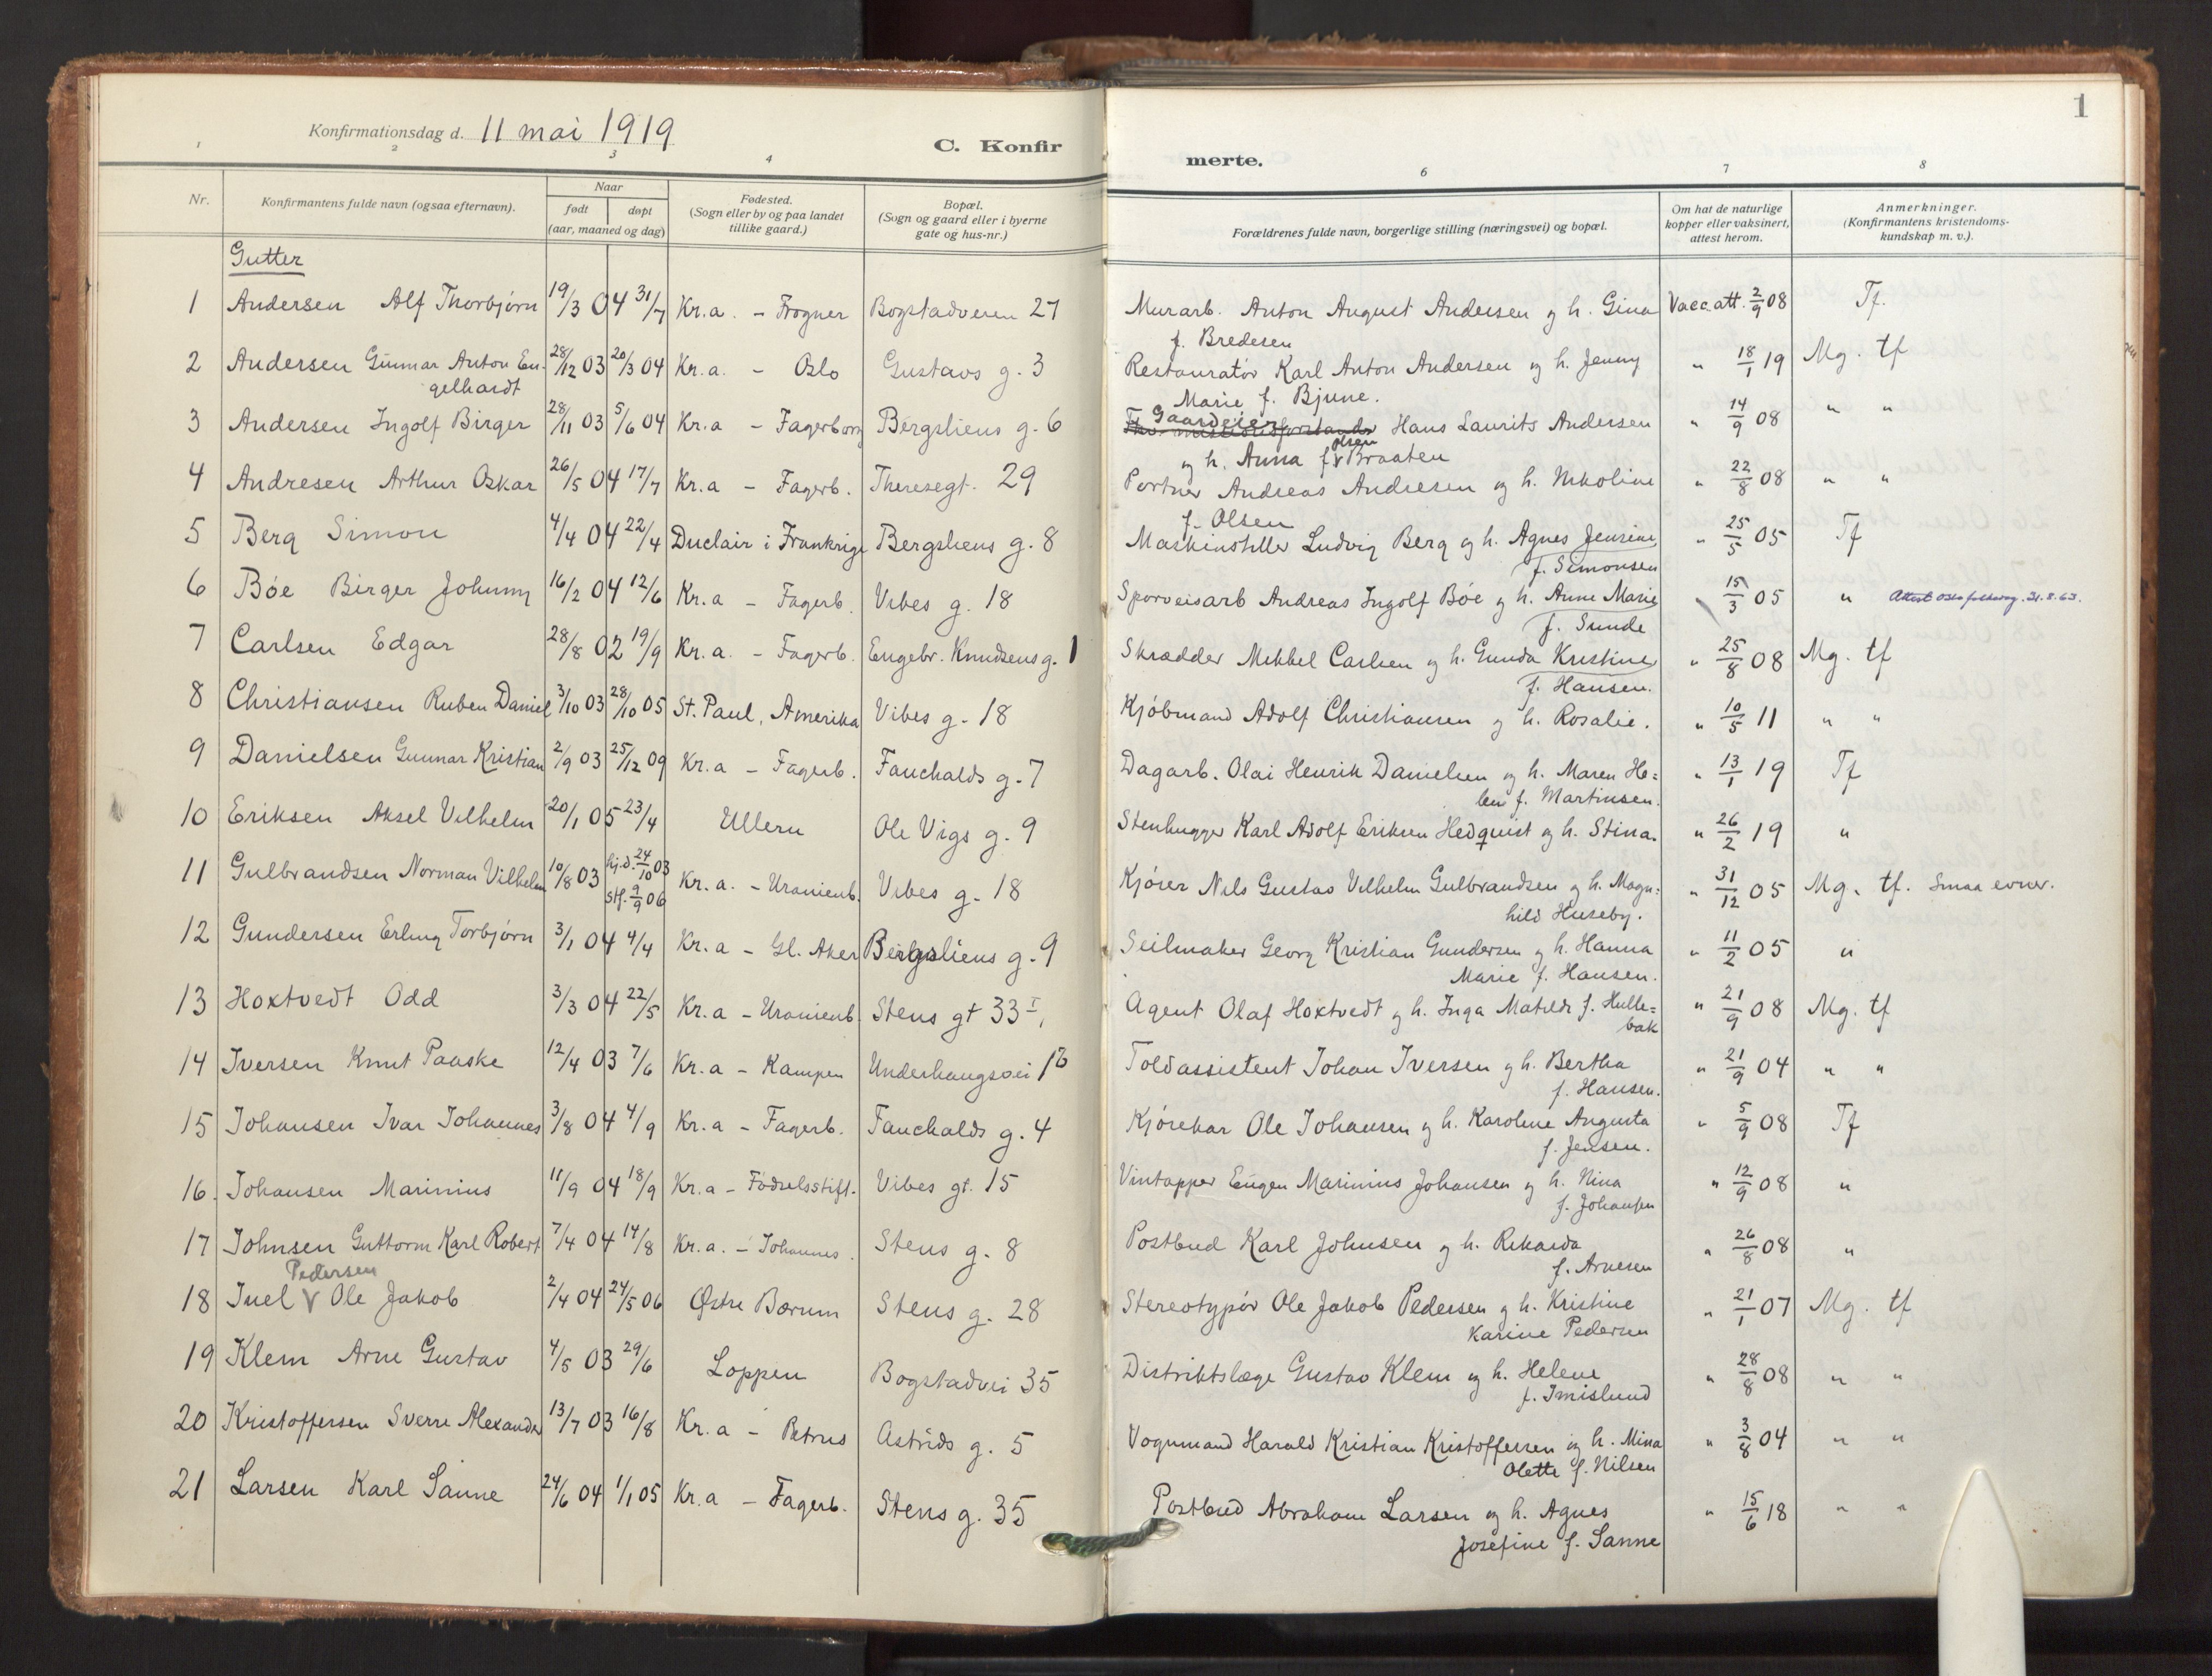 Konfirmationsdag d. 11 mai 1919
C. Konfir
merte.
1
1 2 3 4 6 7 8
Nr. Konfirmantens fulde navn (ogsaa efternavn). Naar født døpt (aar, maaned og dag) Fødested. (Sogn eller by og paa landet tillike gaard.) Bopæl. (Sogn og gaard eller i byerne gate og hus-nr.) Forældrenes fulde navn, borgerlige stilling (næringsvei) og bopæl. Om hat de naturlige kopper eller vaksinert, attest herom. Anmerkninger. (Konfirmantens kristendoms-kundskap m. v.).
Gutter
1 Andersen Alf Thorbjørn 19/3 04 31/7 Kr.a. - Frogner Bogstadveien 27 Murarb. Anton August Andersen og h. Gina Vacc. att. 2/9 08 Tf.
f. Bredesen
2 Andersen Gunnar Anton En- 28/12 03 20/3 04 Kr.a. - Oslo Gustavs g. 3 Restauratør Karl Anton Andersen og h. Jenny " 18/1 19 Mg. tf
gelhardt Marie f. Bjune.
3 Andersen Ingolf Birger 28/11 03 5/6 04 Kr.a - Fagerborg Bergsliens g. 6 Gaardeier Hans Laurits Andersen " 14/9 08 " "
og h. Anna f. Olsen Braaten
4 Andresen Arthur Oskar 26/5 04 17/7 Kr.a - Fagerb. Theresegt. 29 Portner Andreas Andresen og h. Nikoline " 22/8 08 " "
f. Olsen
5 Berg Simon 4/4 04 22/4 Duclair i Frankrige Bergsliens g. 8 Maskinstiller Ludvig Berg og h. Agnes Jensine " 25/5 05 Tf
f. Simonsen
6 Bøe Birger Johnny 16/2 04 12/6 Kr.a - Fagerb. Vibes g. 18 Sporveisarb Andreas Ingolf Bøe og h. Anne Marie " 15/3 05 " Attest Oslo folkereg. 21.8.63.
f. Sunde
7 Carlsen Edgar 28/8 02 19/9 Kr.a. - Fagerb. Engebr. Knudsens g. 1 Skrædder Mikkel Carlsen og h. Gunda Kristine " 25/8 08 Mg. tf
f. Hansen.
8 Christiansen Ruben Daniel 3/10 03 28/10 05 St. Paul, Amerika Vibes g. 18 Kjøbmand Adolf Christiansen og h. Rosalie. " 10/5 11 " "
9 Danielsen Gunnar Kristian 2/9 03 25/12 09 Kr.a - Fagerb. Fauchalds g. 7 Dagarb. Olai Henrik Danielsen og h. Maren He= " 13/1 19 Tf
lene f. Martinsen.
10 Eriksen Aksel Vilhelm 20/1 05 23/4 Ullern Ole Vigs g. 9 Stenhugger Karl Adolf Eriksen Hedquist og h. Stina. " 26/2 19 "
11 Gulbrandsen Norman Vilhelm 10/8 03 hj.d. 24/10 03 stf. 9/9 06 Kr.a. - Uranienb. Vibes g. 18 Kjører Nils Gustav Vilhelm Gulbrandsen og h. Magn= " 31/12 05 Mg. tf. Smaa evner.
hild Huseby.
12 Gundersen Erling Torbjørn 3/1 04 4/4 Kr.a - Gl. Aker Bergsliens g. 9 Seilmaker Georg Kristian Gundersen og h. Hanna " 11/2 05 "
Marie f. Hansen.
13 Hoxtvedt Odd 3/3 04 22/5 Kr.a - Uranienb. Stens gt 33 I, Agent Olaf Hoxtvedt og h. Inga Matilde f. Hulle= " 21/9 08 Mg. tf
bak
14 Iversen Knut Paaske 12/4 03 7/6 Kr.a - Kampen Underhaugsvei Toldassistent Johan Iversen og h. Bertha " 21/9 04 " "
f. Hansen.
15 Johansen Ivar Johannes 3/8 04 4/9 Kr.a - Fagerb. Fauchalds g. 4 Kjørekar Ole Johansen og h. Karoline Augusta " 5/9 08 Tf
f. Jensen.
16. Johansen Marinius 11/9 04 18/9 Kr.a - Fødselsstift. Vibes gt. 15 Vintapper Eugen Marinius Johansen og h. Nina " 12/9 08 "
f. Johansen
17 Johnsen Guttorm Karl Robert 7/4 04 14/8 Kr.a. - Johannes. Stens g. 8 Postbud Karl Johnsen og h. Rikarda " 26/8 08 "
f. Arnesen
Pedersen
18 Juel V Ole Jakob 2/4 04 24/5 06 Østre Bærum Stens g. 28 Stereotypør Ole Jakob Pedersen og h. Kristine " 21/1 07 Mg. tf
Karine Pedersen
19 Klem Arne Gustav 4/5 03 29/6 Loppen Bogstadvei 35 Distriktslæge Gustav Klem og h. Helene " 28/8 08 " "
f. Imislund
20 Kristoffersen Sverre Alexander 13/7 03 16/8 Kr.a - Petrus Astrids g. 5 Vognmand Harald Kristian Kristoffersen og h. Mina " 3/8 04 " "
Olette f. Nilsen
21 Larsen Karl Sanne 24/6 04 1/1 05 Kr.a - Fagerb. Stens g. 35 Postbud Abraham Larsen og h. Agnes " 15/6 18 " "
Josefine f. Sanne